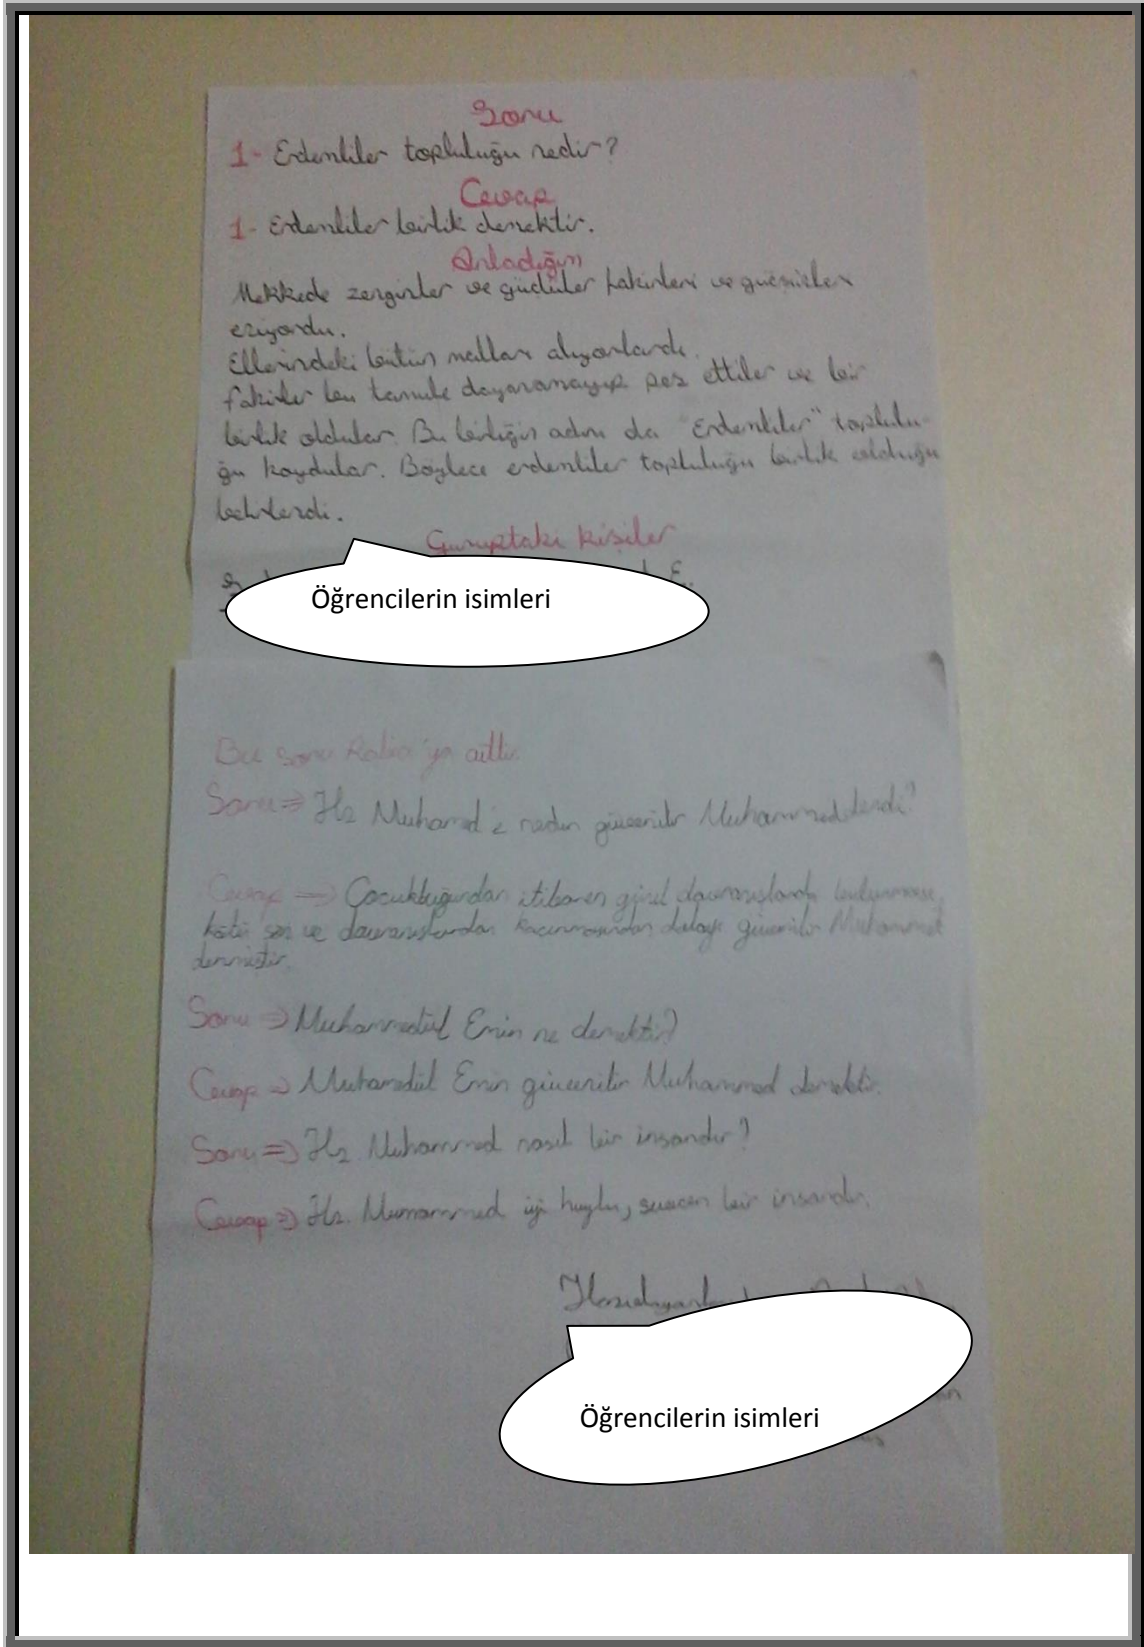 Soru
1- Erdemliler topluluğu nedir?
Cevap
1- Erdemliler birlik demektir.
Anladığım
Mekkede zenginler ve güçlüler fakirleri ve güçsüzleri
eziyordu.
Ellerindeki bütün malları alıyorlardı.
fakirler bu dayanamayıp pes ettiler ve bir
birlik oldular. Bu birliğin adını da "Erdemliler" toplulu-
ğu koydular. Böylece erdemliler topluluğu birlik olduğu
belirlendi.
Guruptaki kişiler
E.
Öğrencilerin isimleri
Bu soru Rabia'ya aittir.
Soru⇒ Hz Muhamed'e neden güvenilir Muhammed dendi?
Cevap ⇒ Çocukluğundan itibaren güzel davranışlarda bulunması,
kötü söz ve davranışlardan kaçınmasından dolayı güvenilir Muhammet
denmiştir.
Soru ⇒ Muhammedül Emin ne demektir?
Cevap ⇒ Muhamedül Emin güvenilir Muhammed demektir.
Soru ⇒ Hz. Muhammed nasıl bir insandır?
Cevap ⇒ Hz. Mumammed iyi huylu, bir insandır.
Öğrencilerin isimleri